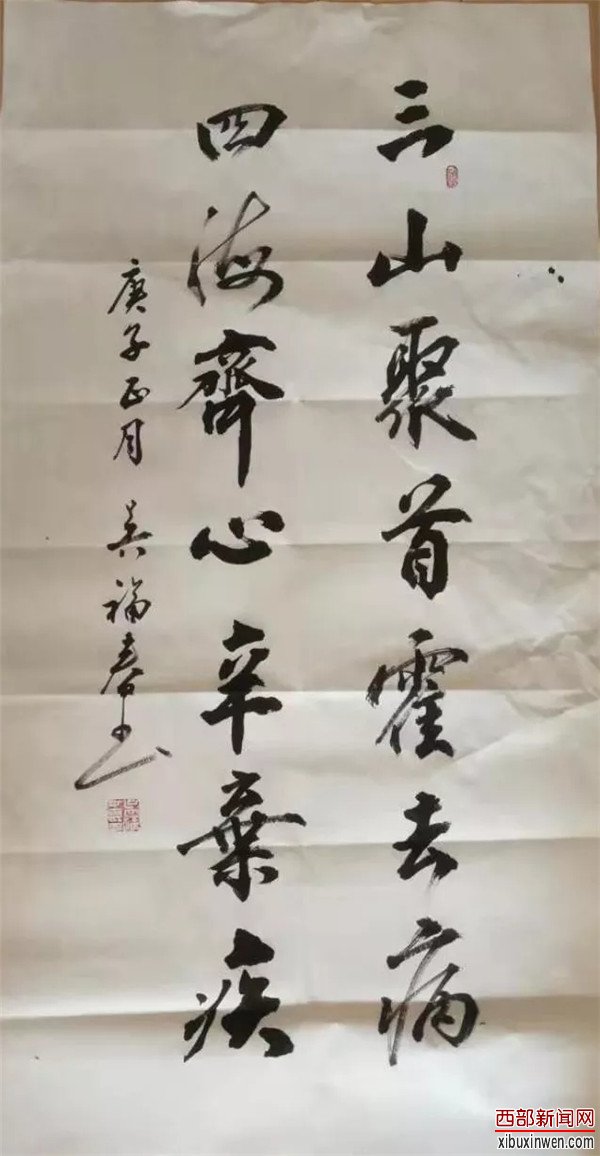 三山聚首霍去病
四海齊心辛棄疾
庚子正月 吴福春书
西部新闻网
xibuxinwen.com